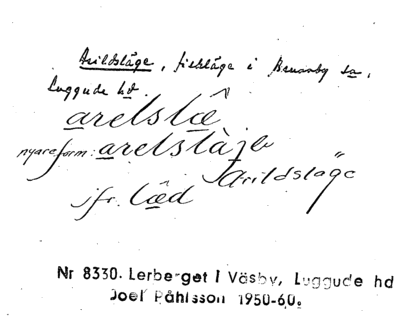 Arildsläge, fiskläge i Brunnby sn,
Luggude hd.
arelslæ̂
nyare form: arelslàje
Arildsläge
jfr. læd
Nr 8330. Lerberget i Väsby, Luggude hd
Joel Påhlsson 1950-60.